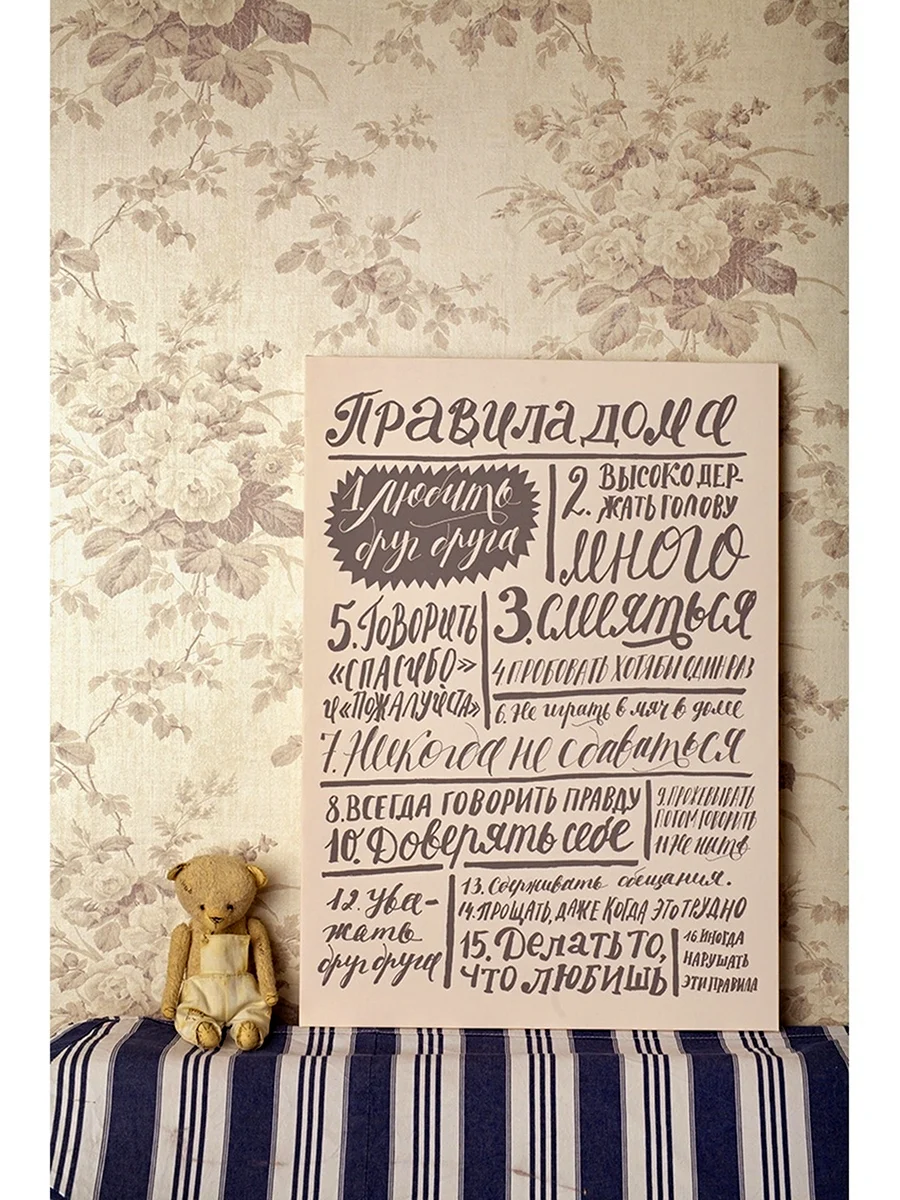 Правила дома
1. Любить
друг друга
2. Высоко дер-
жать голову
много
3. смеяться
4 пробовать хотя бы один раз
5. Говорить
«спасибо»
и «пожалуйста»
6. Не играть в мяч в доме
7. Никогда не сдаваться
8. Всегда говорить правду
9. прожевывать
потом говорить
10. Доверять себе
11 Не ныть
12. Ува-
жать
друг друга
13. Сдерживать обещания.
14. прощать, даже когда это трудно
15. Делать то,
что любишь
16. иногда
нарушать
эти правила